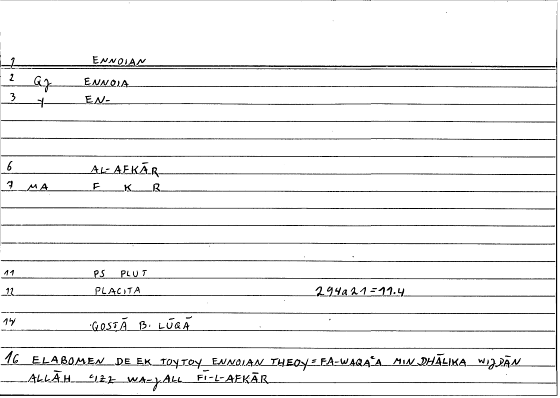 1 ENNOIAN
2 GJ ENNOIA
3 Y EN-
6 AL-AFKĀR
7 MA F K R
11 PS PLUT
12 PLACITA 294a21=11.4
14 QOSTĀ B. LŪQĀ
16 ELABOMEN DE EK TOYTOY ENNOIAN THEOY = FA-WAQAʿA MIN DHĀLIKA WIJDĀN
ALLĀH ʿIZZ WA-JALL FĪ-L-AFKĀR